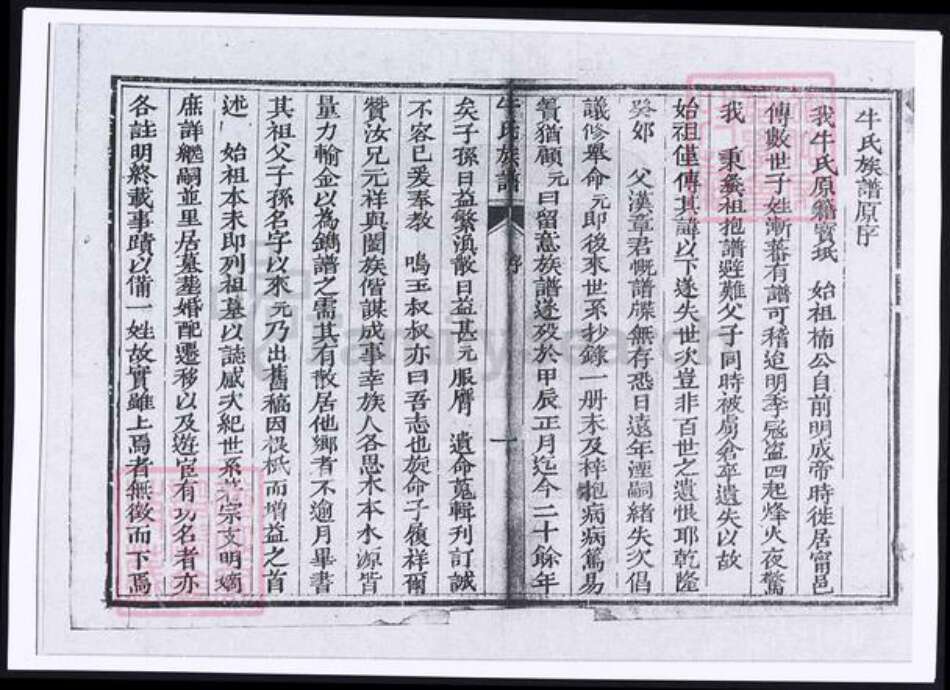 牛氏族譜原序
我牛氏原籍寳坻 始祖楠公自前明成帝時徙居甯邑
傳數世子姓漸蕃有譜可稽迨明季寇盜四起烽火夜驚
我 秉彝祖抱譜避難父子同時被虜倉卒遺失以故
始祖僅傳其諱以下遂失世次豈非百世之遺恨耶乾隆
癸卯 父漢章君慨譜牒無存恐日遠年湮嗣緒失次倡
議修舉命元即後來世系抄錄一册未及梓抱病病篤易
簀猶顧元曰留意族譜遂歿於甲辰正月迄今二十餘年
牛氏族譜 序 一
矣子孫日益繁渙散日益甚元服膺 遺命蒐輯刊訂誠
不容已爰奉教 鳴玉叔叔亦曰吾志也旋命子履祥爾
贊汝兄元祥與闔族偕謀成事幸族人各思木本水源皆
量力輸金以為鐫譜之需其有散居他鄉者不逾月畢書
其祖父子孫名字以來元乃出舊稿因 而增益之首
述 始祖本末即列祖墓以誌感次紀世系 宗支明嫡
庶詳繼嗣並里居墓塟婚配遷移以及遊宦有功名者亦
各註明終載事蹟以備一姓故實雖上焉者無徵而下焉